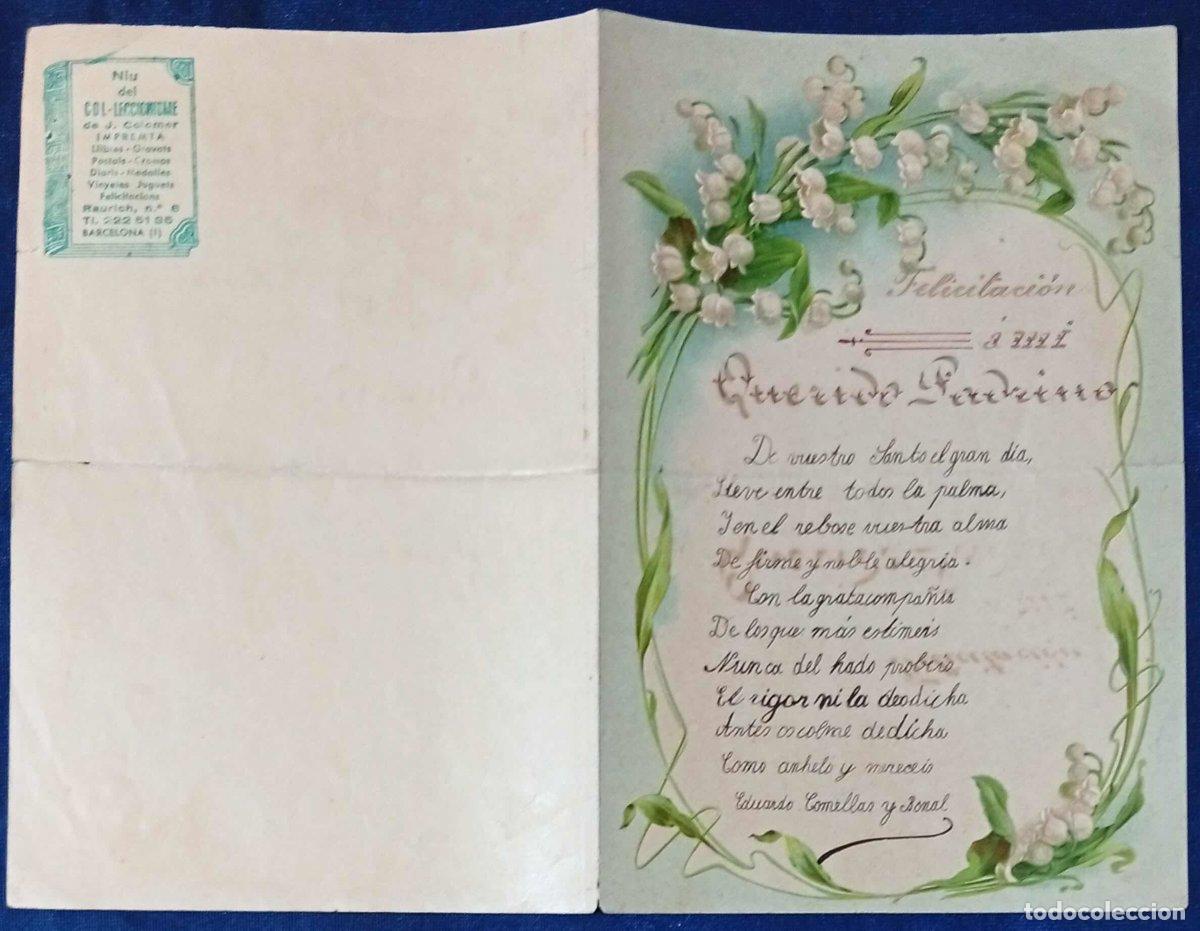 Niu
del
COL·LECCIONISME
de J. Colomer
IMPREMTA
Llibres - Gravats
Postals - Cromos
Diaris - Medalles
Vinyetes Joguets
Felicitacions
Raurich, n.º 6
Tl. 222 51 86
BARCELONA (1)
Felicitación
á mi
Querido Padrino
De vuestro Santo el gran día,
Lleve entre todos la palma,
Y en el rebose vuestra alma
De firme y noble alegría.
Con la grata compañia
De los que más estimeis
Nunca del hado probeis
El rigor ni la desdicha
Antes os colme de dicha
Como anhelo y mereceis
Eduardo Comellas y Bonal
todocoleccion